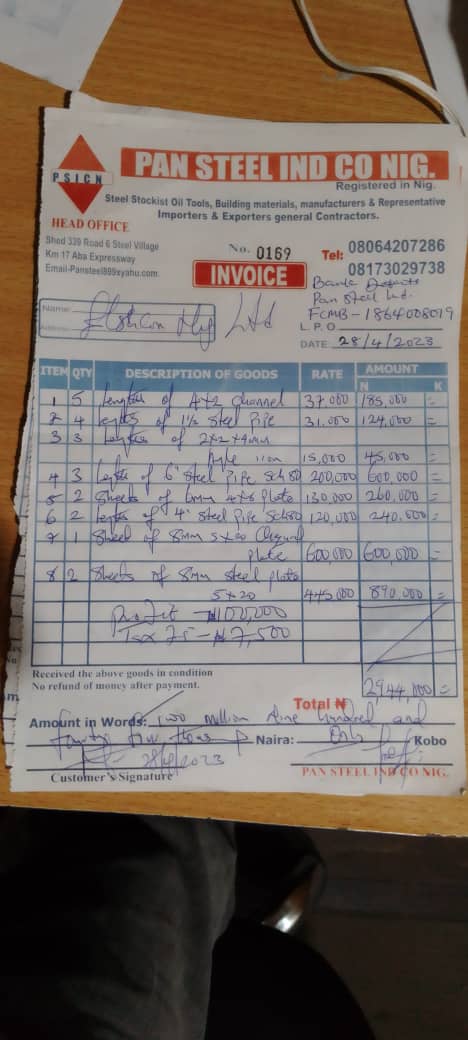 PSICN
PAN STEEL IND CO NIG.
Registered in Nig.
Steel Stockist Oil Tools, Building materials, manufacturers & Representative
Importers & Exporters general Contractors.
HEAD OFFICE
Shed 339 Road 6 Steel Village
Km 17 Aba Expressway
Email-Pansteel999@yahu.com
No. 0169
Tel: 08064207286
08173029738
INVOICE
Bank Deposits
Pan Steel Ind.
FCMB - 1864008019
Name:
Address:
Ltd
L.P.O
DATE 28/4/2023
ITEM QTY DESCRIPTION OF GOODS RATE AMOUNT
N K
1 5 Lengths of 4x2 Channel 37,000 185,000 =
2 4 lengths of 1½ Steel Pipe 31,000 124,000 =
3 3 Lengths of 2x2x4mm
Angle iron 15,000 45,000 =
4 3 Lengths of 6" Steel Pipe Sch80 200,000 600,000 =
5 2 Sheets of 6mm 4x8 plate 130,000 260,000 =
6 2 lengths of 4" Steel Pipe Sch80 120,000 240,000 =
7 1 Sheet of 8mm 5x20
Plate 600,000 600,000 =
8 2 Sheets of 8mm Steel plate
5x20 445,000 890,000 =
Profit - ₦100,000
Tax 75 - ₦7,500
Received the above goods in condition
No refund of money after payment.
Total ₦ 2944,000 =
Amount in Words: Two million Nine hundred and
Fourty four thous Naira: Only Kobo
28/4/2023
Customer's Signature
PAN STEEL IND CO NIG.